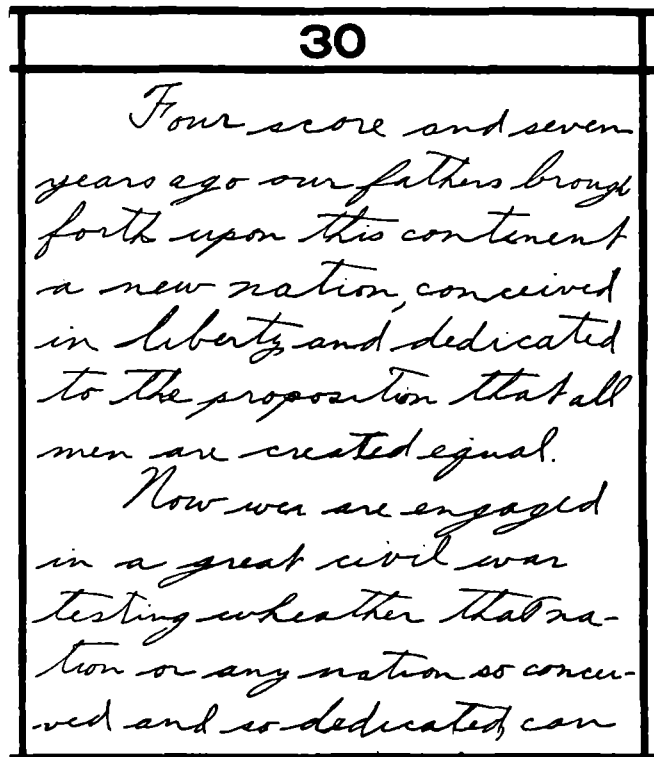 30
Four score and seven
years ago our fathers brough
forth upon this continent
a new nation, conceived
in liberty, and dedicated
to the proposition that all
men are created equal.
Now we are engaged
in a great civil war
testing wheather that na-
tion or any nation so concei-
ved and so dedicated, can